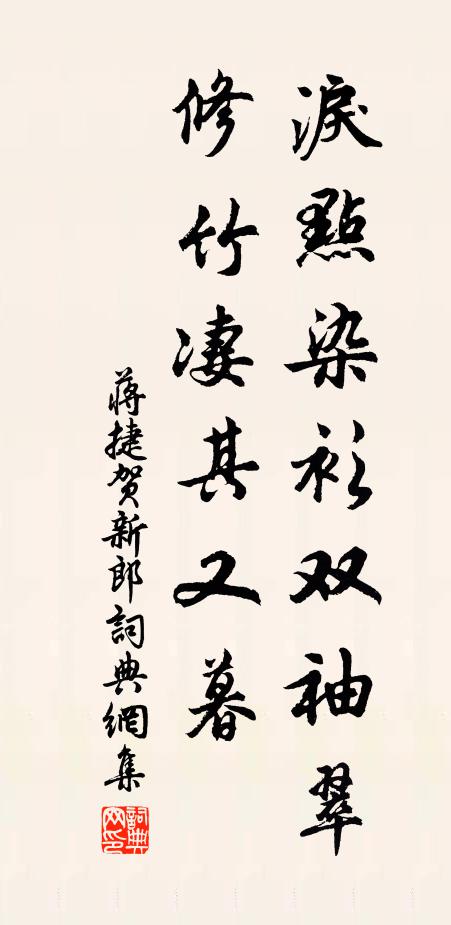 淚點染衫双袖翠
修竹凄其又暮
蔣捷贺新郎詞典網集
詞典网印